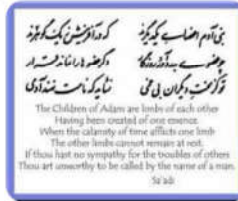 بنی آدم اعضای یکدیگرند که در آفرینش ز یک گوهرند
چو عضوی بدرد آورد روزگار دگر عضوها را نماند قرار
تو کز محنت دیگران بی غمی نشاید که نامت نهند آدمی
The Children of Adam are limbs of each other
Having been created of one essence.
When the calamity of time afflicts one limb
The other limbs cannot remain at rest.
If thou hast no sympathy for the troubles of others
Thou art unworthy to be called by the name of a man.
Sa'adi